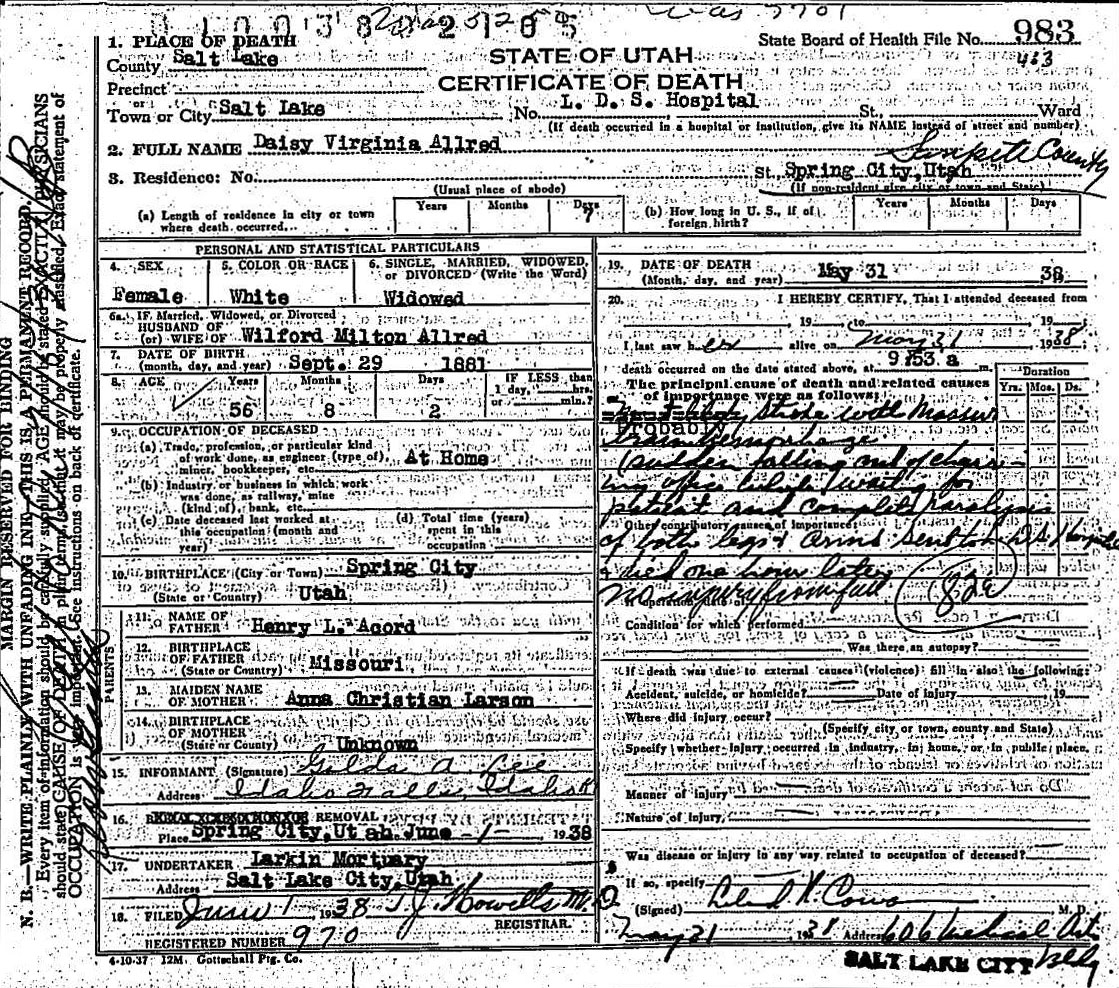 was 3701
State Board of Health File No. 983
463
1. PLACE OF DEATH
County Salt Lake
STATE OF UTAH
CERTIFICATE OF DEATH
Precinct
or
Town or City Salt Lake No. L. D. S. Hospital St., Ward
(If death occurred in a hospital or institution, give its NAME instead of street and number)
2. FULL NAME Daisy Virginia Allred
Sanpete County
3. Residence: No. St. Spring City, Utah
(Usual place of abode) (If non-resident give city or town and State)
(a) Length of residence in city or town where death occurred Years Months Days 7
(b) How long in U. S., if of foreign birth? Years Months Days
PERSONAL AND STATISTICAL PARTICULARS
4. SEX Female
5. COLOR OR RACE White
6. SINGLE, MARRIED, WIDOWED, or DIVORCED (Write the Word) Widowed
6a. IF Married, Widowed, or Divorced
HUSBAND OF
(or) WIFE OF Wilford Milton Allred
7. DATE OF BIRTH
(month, day, and year) Sept. 29 1881
8. AGE Years 56 Months 8 Days 2 IF LESS than 1 day, hrs. or min.?
9. OCCUPATION OF DECEASED
(a) Trade, profession, or particular kind
of work done, as engineer (type of), At Home
miner, bookkeeper, etc.
(b) Industry or business in which work
was done, as railway, mine
(kind of), bank, etc.
(c) Date deceased last worked at this occupation (month and year)
(d) Total time (years) spent in this occupation
10. BIRTHPLACE (City or Town) Spring City
(State or Country) Utah
PARENTS
11. NAME OF FATHER Henry L. Acord
12. BIRTHPLACE OF FATHER (State or Country) Missouri
13. MAIDEN NAME OF MOTHER Anna Christian Larson
14. BIRTHPLACE OF MOTHER (State or County) Unknown
15. INFORMANT (Signature) Gilda A. Lee
Address Idaho Falls, Idaho
16. REMOVAL
Place Spring City, Utah June -1- 1938
17. UNDERTAKER Larkin Mortuary
Address Salt Lake City, Utah
18. FILED June 1 1938 T. J. Howells M. D
REGISTRAR.
REGISTERED NUMBER 970
4-10-37 12M. Gottschall Ptg. Co.
19. DATE OF DEATH
(Month, day, and year) May 31 38
20. I HEREBY CERTIFY, That I attended deceased from
19 to 19
I last saw her alive on May 31 1938
death occurred on the date stated above, at 9:53 a m.
The principal cause of death and related causes of importance were as follows:
Duration
Yrs. Mos. Ds.
Probably stroke with Massive
brain hemorrhage
(sudden falling out of chair
in office while waiting for
patient and complete paralysis
Other contributory causes of importance:
of both legs & arms sent to L.D.S. Hospital
& died one hour later
no injury from fall
82a
If operation, date of
Condition for which performed
Was there an autopsy?
If death was due to external causes (violence) fill in also the following:
Accident, suicide, or homicide? Date of injury 19
Where did injury occur?
(Specify city or town, county and State)
Specify whether injury occurred in industry, in home, or in public place.
Manner of injury
Nature of injury
Was disease or injury in any way related to occupation of deceased?
If so, specify
(Signed) M. D.
May 31 1938 Address 606 Medical Arts
Bldg
SALT LAKE CITY
MARGIN RESERVED FOR BINDING
N. B.—WRITE PLAINLY WITH UNFADING INK—THIS IS A PERMANENT RECORD.
Every item of information should be carefully supplied. AGE should be stated EXACTLY. PHYSICIANS
should state CAUSE OF DEATH in plain terms, so that it may be properly classified. Exact statement of
OCCUPATION is very important. See instructions on back of certificate.